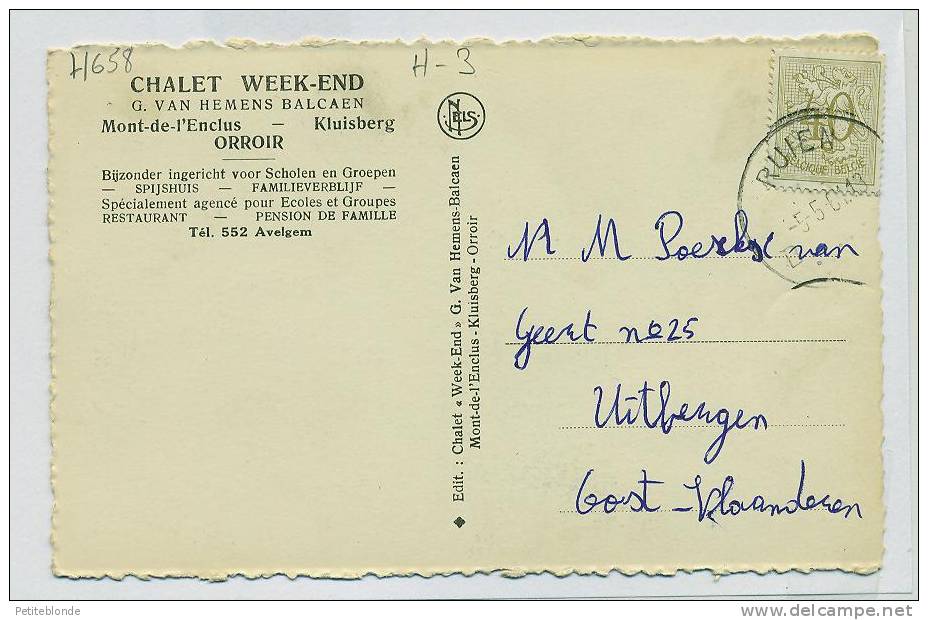 H658
H-3
CHALET WEEK-END
G. VAN HEMENS BALCAEN
Mont-de-l'Enclus — Kluisberg
ORROIR
Bijzonder ingericht voor Scholen en Groepen
— SPIJSHUIS — FAMILIEVERBLIJF —
Spécialement agencé pour Ecoles et Groupes
RESTAURANT — PENSION DE FAMILLE
Tél. 552 Avelgem
NELS
◆ Edit. : Chalet « Week-End » G. Van Hemens-Balcaen
Mont-de-l'Enclus - Kluisberg - Orroir
40
BELGIQUE BELGIE
RUIEN
van
Geert no 25
Uitbergen
Oost-Vlaanderen
Petiteblonde
delcampe.net